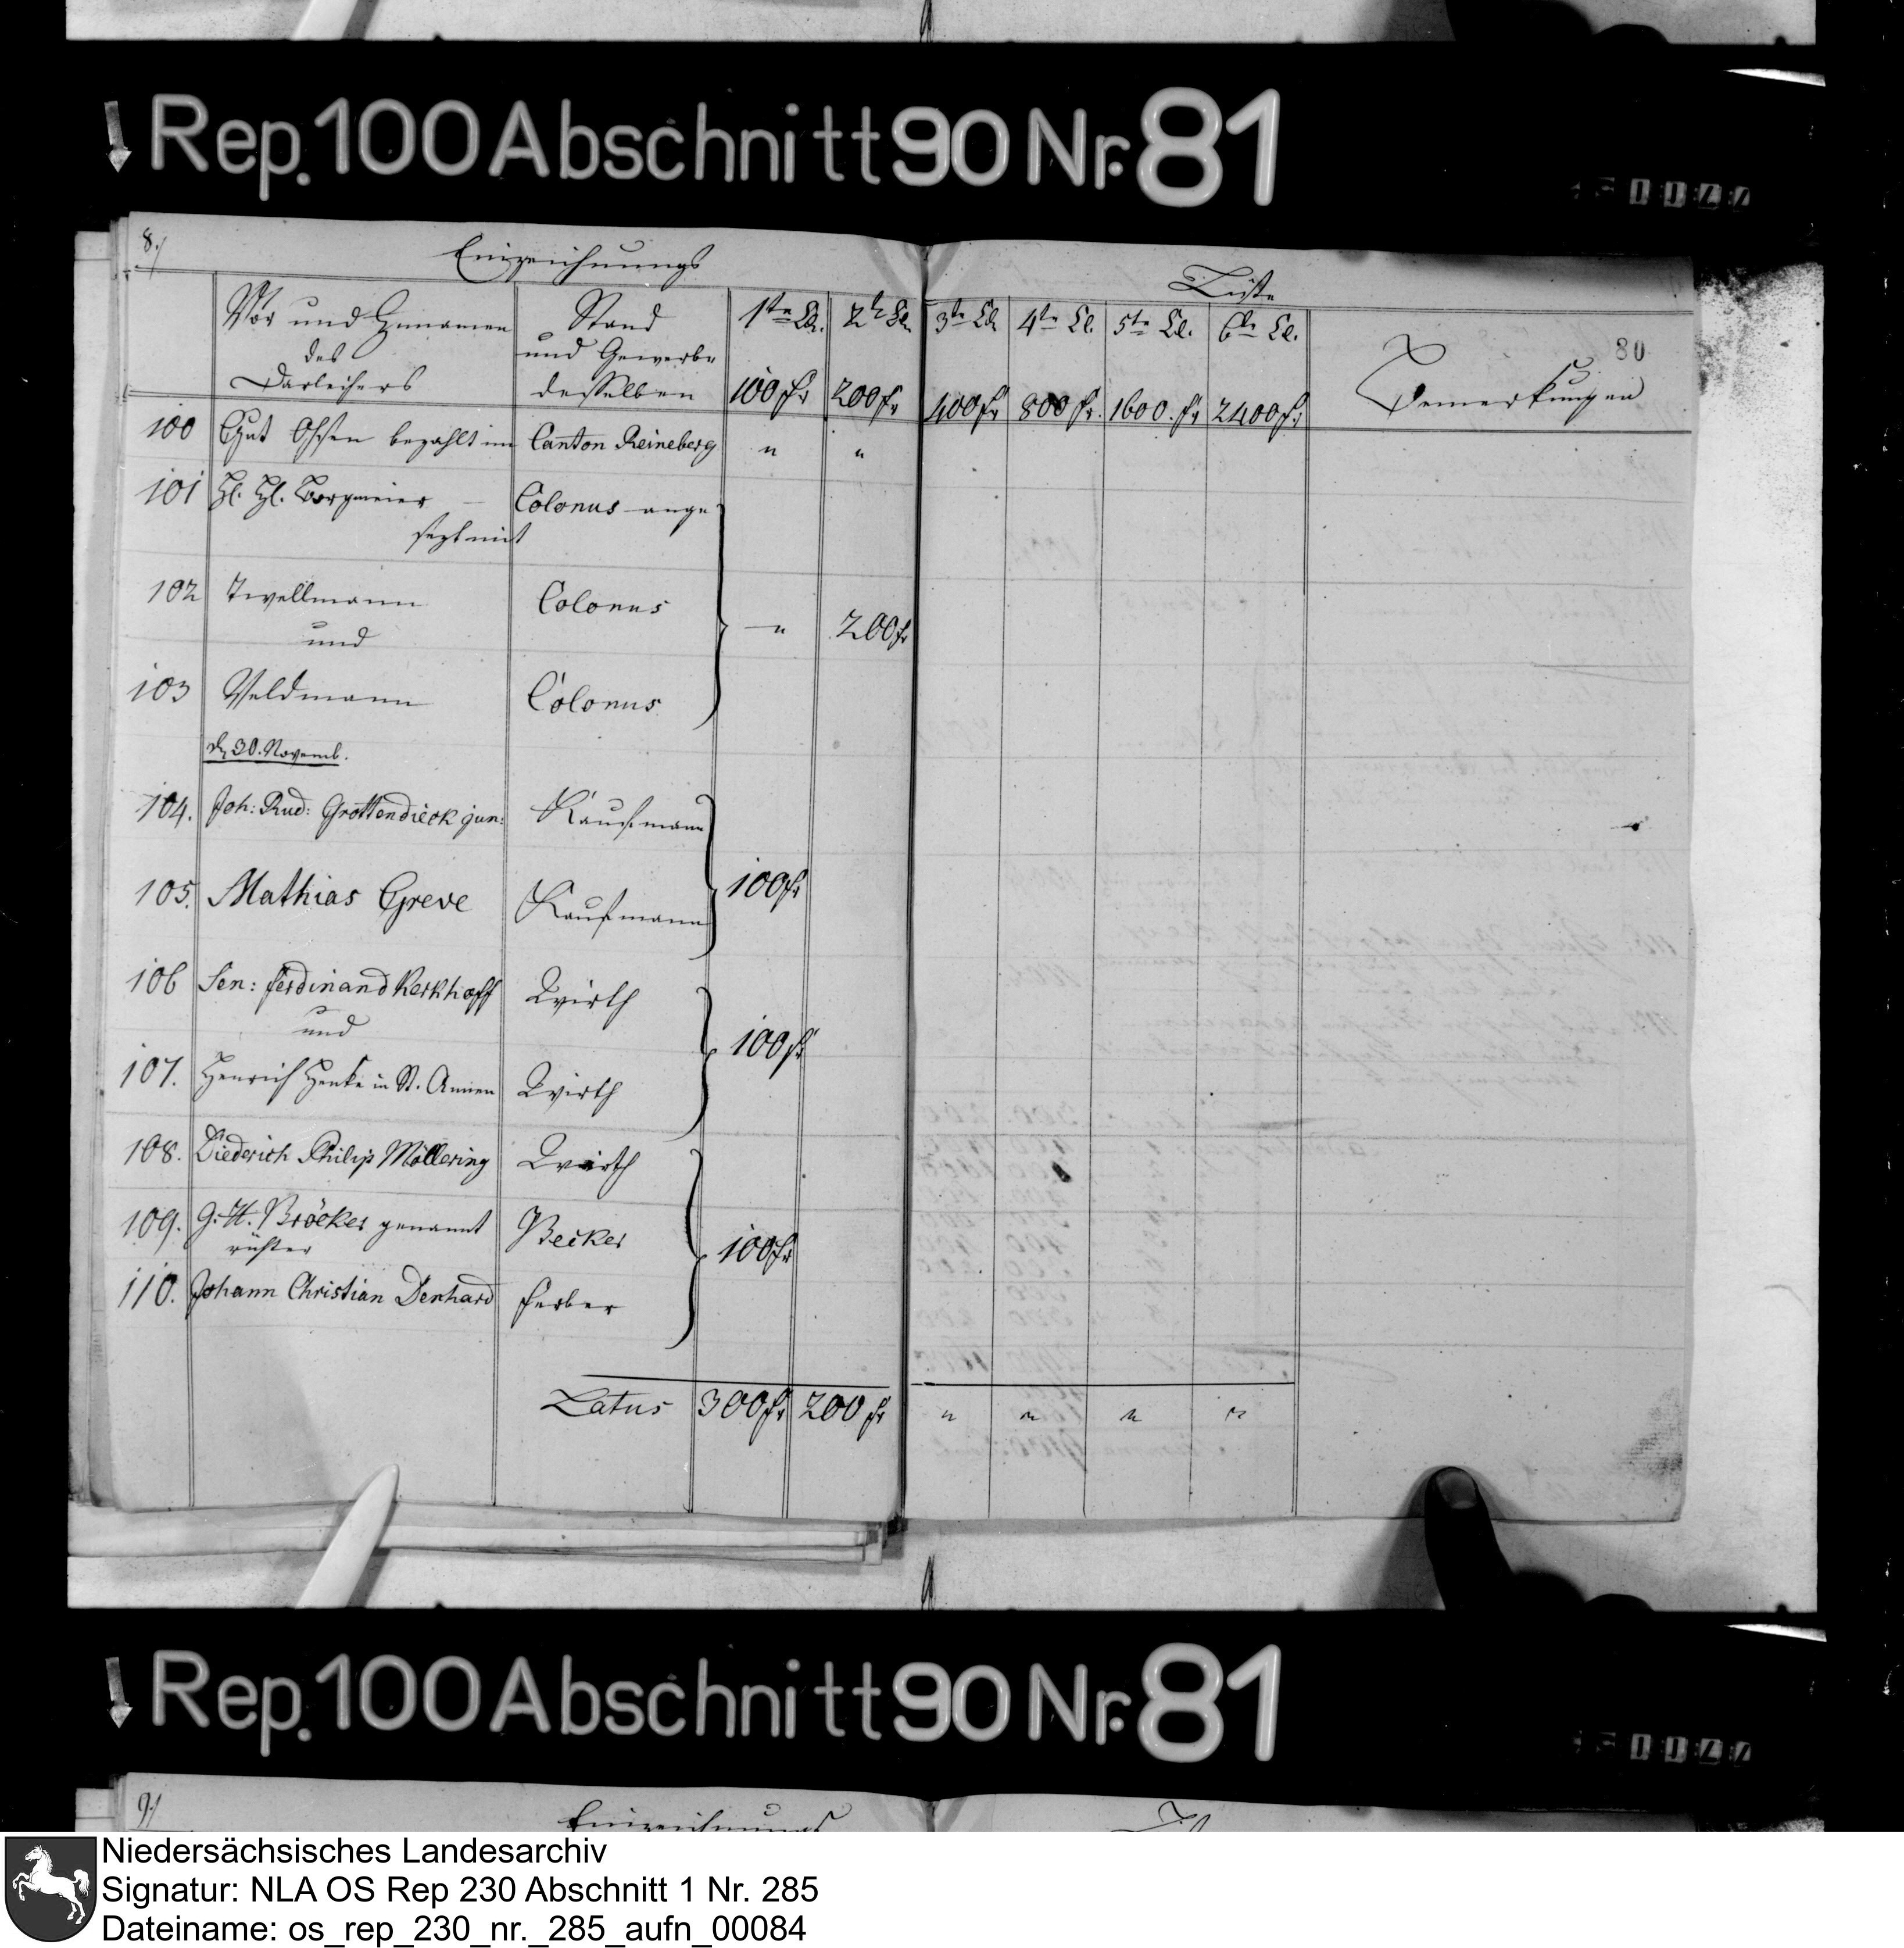 Rep. 100 Abschnitt 90 Nr. 81
8./
Einzeichnungs
Liste
80
Vor und Zunamen
des
Darleihers
Stand
und Gewerbe
desselben
1te Cl.
100 fr
2te Cl.
200 fr
3te Cl.
400 fr
4te Cl.
800 fr.
5te Cl.
1600. fr
6te Cl.
2400 fr.
Bemerkungen
100 Gut bezahlt im Canton Reineberg " "
101 Borgmeier — Colonus ange
setzt mit
102 Twellmann Colonus
und — " 200 fr
103 Veldmann Colonus
d. 30. Novemb.
104. Joh: Rud: Grottendieck jun: Kaufmann
105. Mathias Greve Kaufmann 100 fr
106 Sen: Ferdinand Kerkhoff Wirth
und 100 fr
107. Henrich Henke in St. Annen Wirth
108. Diederich Philip Möllering Wirth
109. G. H. Bröcker genannt Becker
100 fr
110. Johann Christian Denhard Färber
Latus 300 fr 200 fr " " " "
Rep. 100 Abschnitt 90 Nr. 81
9./
Einzeichnungs
Niedersächsisches Landesarchiv
Signatur: NLA OS Rep 230 Abschnitt 1 Nr. 285
Dateiname: os_rep_230_nr._285_aufn_00084